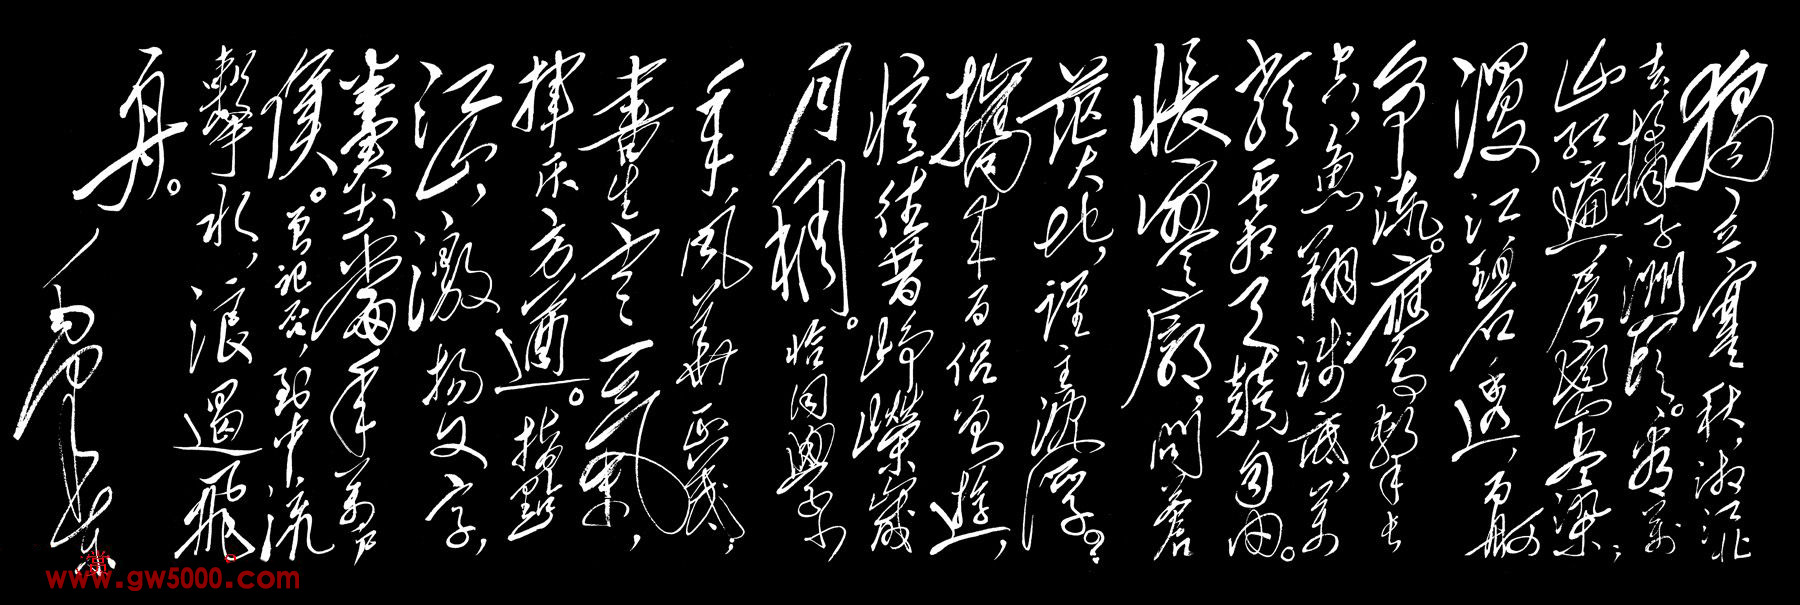 独立寒秋，湘江北
去，橘子洲头。看万
山红遍，层峦尽染，
漫江碧透，百舸
争流。鹰击长
空，鱼翔浅底，万
类霜天竞自由。
怅寥廓，问苍
茫大地，谁主沉浮？
携来百侣曾游，
忆往昔峥嵘岁
月稠。恰同学少
年，风华正茂，
书生意气，
挥斥方遒。指点
江山，激扬文字，
粪土当年万户
侯。曾记否，到中流
击水，浪遏飞
舟。
毛泽东
www.gw5000.com